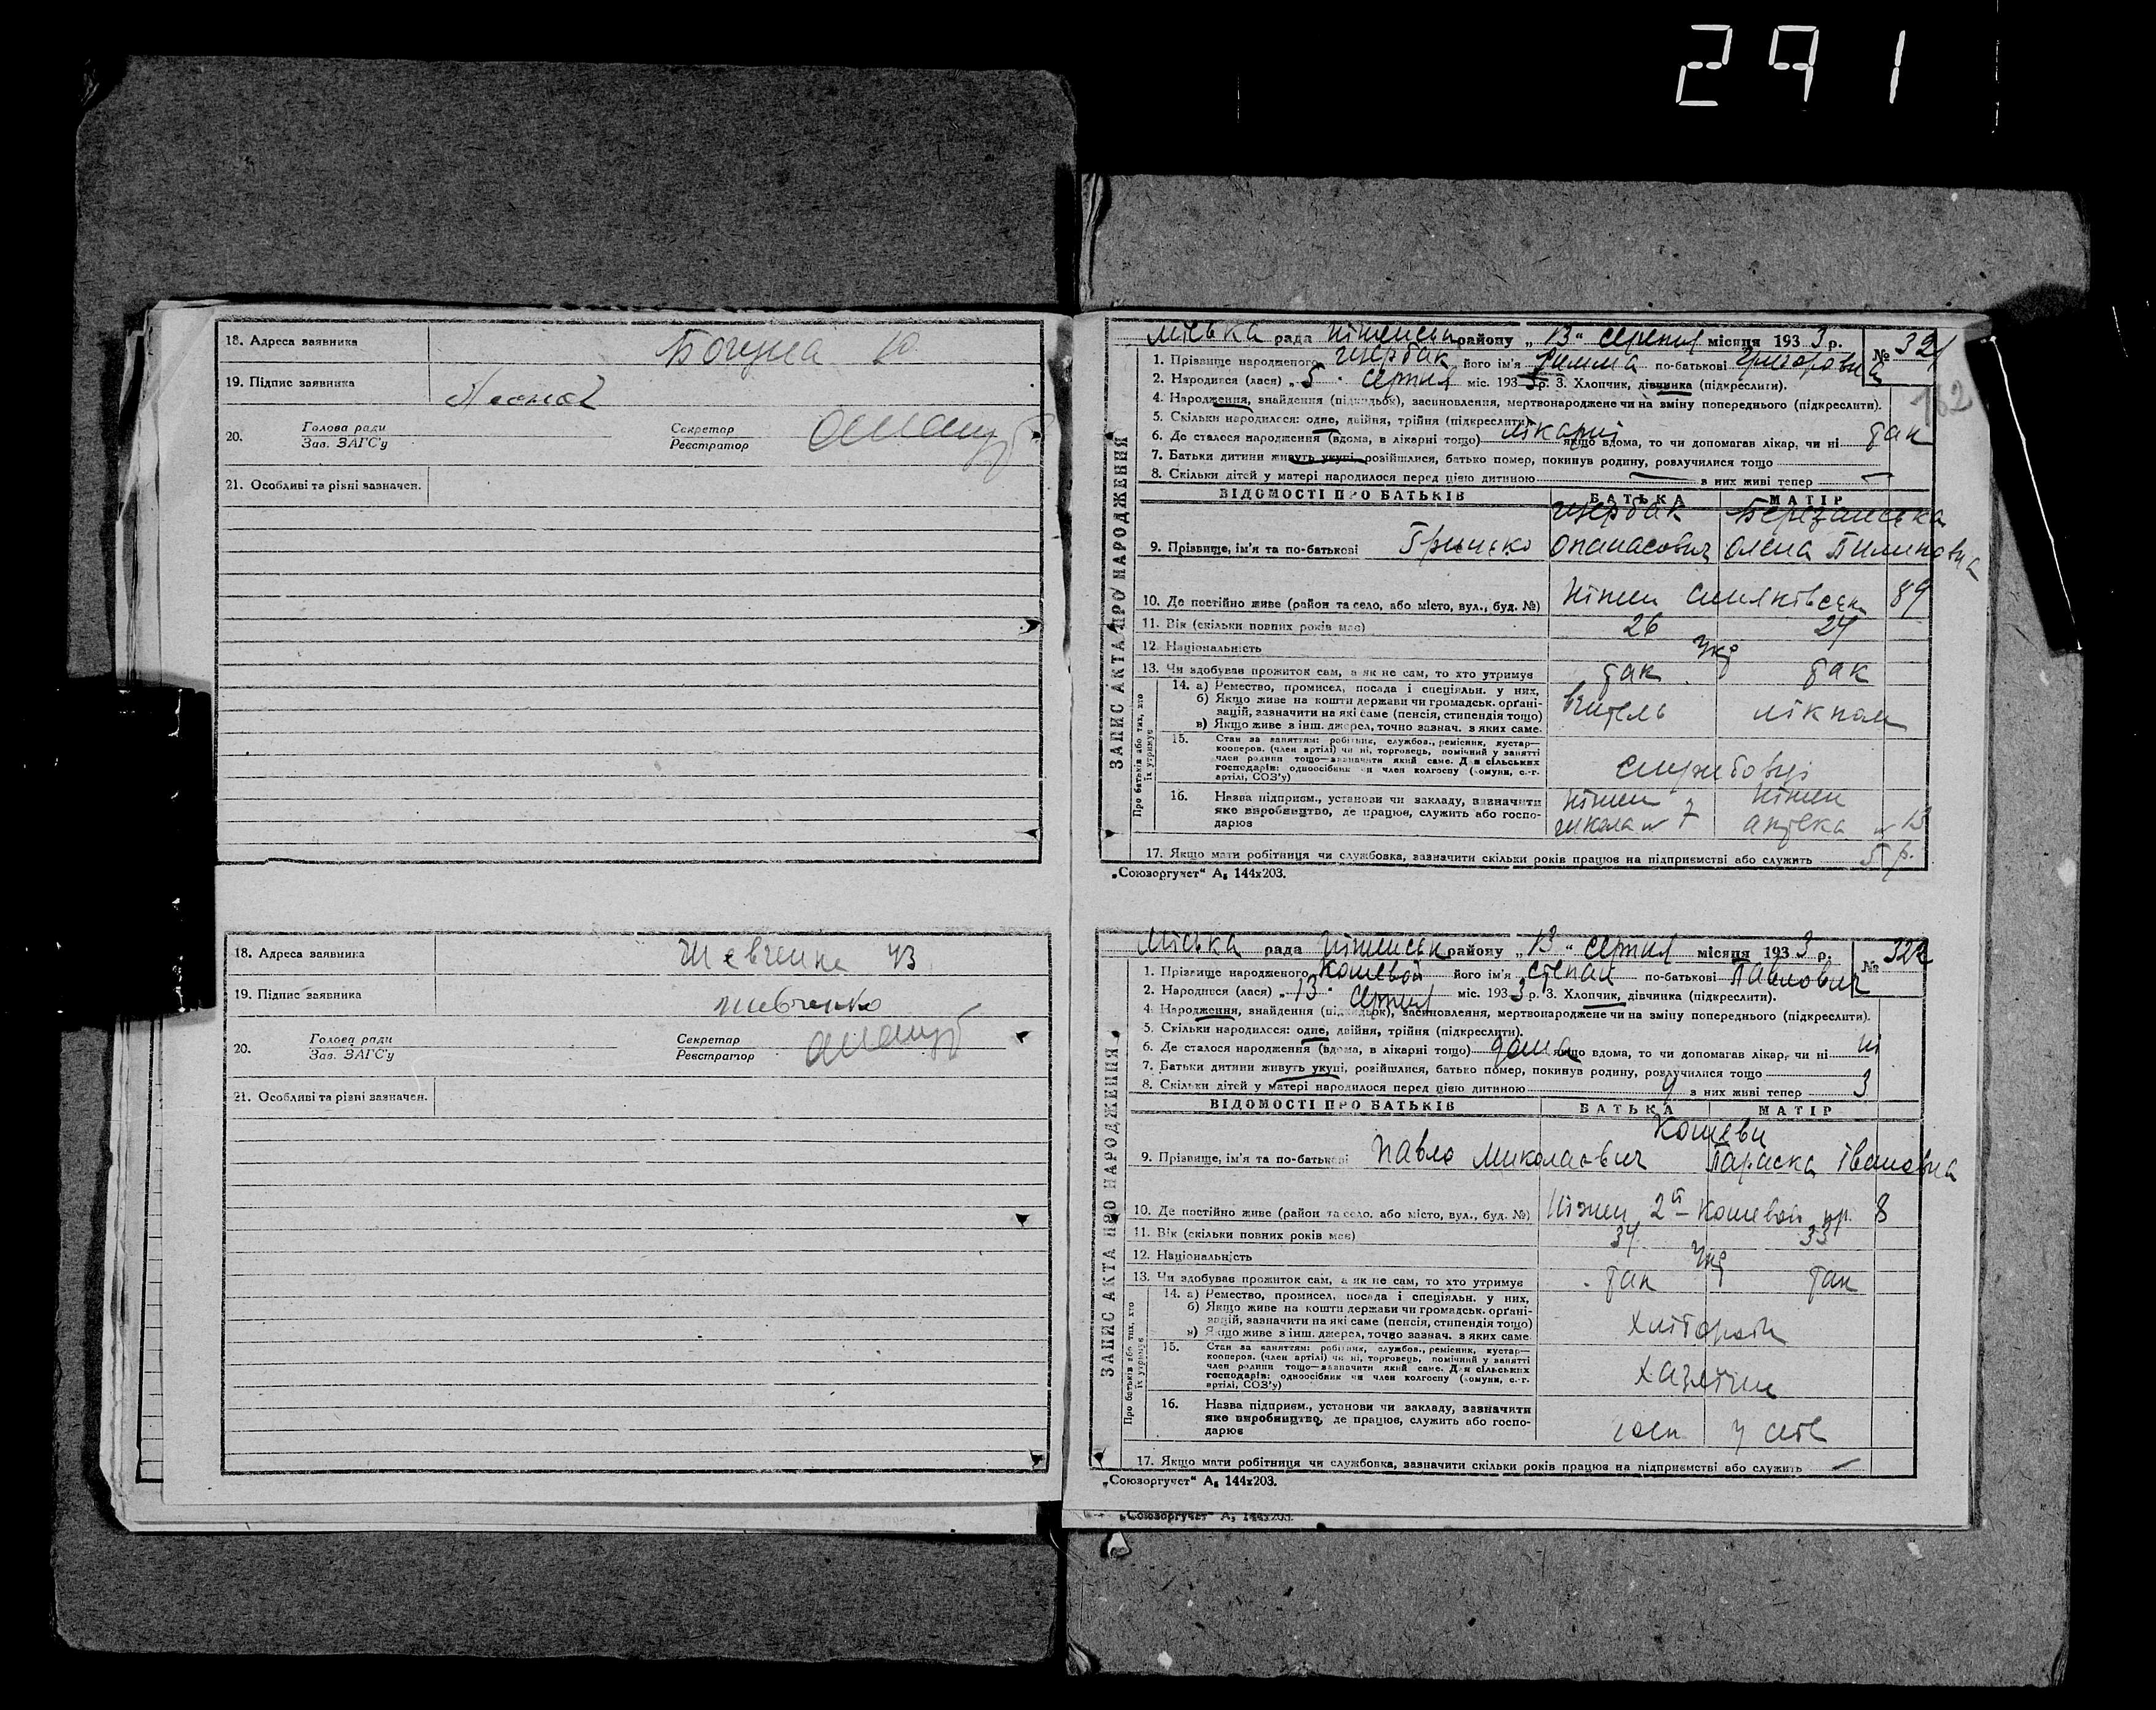 291
18. Адреса заявника Богуна 10
19. Підпис заявника
20. Голова ради
Зав. ЗАГС'у
Секретар
Реєстратор
21. Особливі та різні зазначен.
18. Адреса заявника Шевченка 43
19. Підпис заявника Шевченко
20. Голова ради
Зав. ЗАГС'у
Секретар
Реєстратор
21. Особливі та різні зазначен.
ЗАПИС АКТА ПРО НАРОДЖЕННЯ
Міська рада Ніженськ району „13" серпня місяця 1933 р. № 321
1. Прізвище народженого Щербак його ім'я Римма по-батькові Григоровна
162
2. Народився (лася) „5" серпня міс. 1933 р. 3. Хлопчик, дівчинка (підкреслити).
4. Народження, знайдення (підкидьок), засиновлення, мертвонароджене чи на зміну попереднього (підкреслити).
5. Скільки народилося: одне, двійня, трійня (підкреслити).
6. Де сталося народження (вдома, в лікарні тощо) лікарні якщо вдома, то чи допомагав лікар, чи ні так
7. Батьки дитини живуть укупі, розійшлися, батько помер, покинув родину, розлучилися тощо
8. Скільки дітей у матері народилося перед цією дитиною — в них живі тепер —
ВІДОМОСТІ ПРО БАТЬКІВ БАТЬКА МАТІР
Щербак Березанська
9. Прізвище, ім'я та по-батькові Грицько Опанасович Олена Пилиповна
10. Де постійно живе (район та село, або місто, вул., буд. №) Ніжен 89
11. Вік (скільки повних років має) 26 24
12. Національність Укр
13. Чи здобуває прожиток сам, а як не сам, то хто утримує так так
Про батьків або тих, хто їх утримує
14. а) Ремество, промисел, посада і спеціяльн. у них,
б) Якщо живе на кошти держави чи громадськ. орґані-
зацій, зазначити на які саме (пенсія, стипендія тощо) вчитель лікпом
в) Якщо живе з інш. джерел, точно зазнач. з яких саме.
15. Стан за заняттям: робітник, службов., ремісник, кустар—
кооперов. (член артілі) чи ні, торговець, помічний у занятті
член родини тощо—зазначити який саме. Для сільських
господарів: одноосібник чи член колгоспу (комуни, с.-г.
артілі, СОЗ'у) службовці
16. Назва підприєм., установи чи закладу, зазначити Ніжен Ніжен
яке виробництво, де працює, служить або госпо-
дарює школа № 7 аптека № 13
17. Якщо мати робітниця чи службовка, зазначити скільки років працює на підприємстві або служить 5 р.
„Союзоргучет" А₅ 144х203.
ЗАПИС АКТА ПРО НАРОДЖЕННЯ
Міська рада Ніженськ району „13" серпня місяця 1933 р. № 322
1. Прізвище народженого Кошевой його ім'я Степан по-батькові Павлович
2. Народився (лася) „13" серпня міс. 1933 р. 3. Хлопчик, дівчинка (підкреслити).
4. Народження, знайдення (підкидьок), засиновлення, мертвонароджене чи на зміну попереднього (підкреслити).
5. Скільки народилося: одне, двійня, трійня (підкреслити).
6. Де сталося народження (вдома, в лікарні тощо) дома якщо вдома, то чи допомагав лікар, чи ні ні
7. Батьки дитини живуть укупі, розійшлися, батько помер, покинув родину, розлучилися тощо
8. Скільки дітей у матері народилося перед цією дитиною 4 в них живі тепер 3
ВІДОМОСТІ ПРО БАТЬКІВ БАТЬКА МАТІР
Кошеви
9. Прізвище, ім'я та по-батькові Павло Миколаєвич Параска Івановна
10. Де постійно живе (район та село, або місто, вул., буд. №) Ніжен 2й Кошевой пр. 8
11. Вік (скільки повних років має) 34 33
12. Національність Укр
13. Чи здобуває прожиток сам, а як не сам, то хто утримує так так
Про батьків або тих, хто їх утримує
14. а) Ремество, промисел, посада і спеціяльн. у них,
б) Якщо живе на кошти держави чи громадськ. орґані-
зацій, зазначити на які саме (пенсія, стипендія тощо)
в) Якщо живе з інш. джерел, точно зазнач. з яких саме. хлібороби
15. Стан за заняттям: робітник, службов., ремісник, кустар—
кооперов. (член артілі) чи ні, торговець, помічний у занятті
член родини тощо—зазначити який саме. Для сільських
господарів: одноосібник чи член колгоспу (комуни, с.-г.
артілі, СОЗ'у)
16. Назва підприєм., установи чи закладу, зазначити
яке виробництво, де працює, служить або госпо-
дарює у себе
17. Якщо мати робітниця чи службовка, зазначити скільки років працює на підприємстві або служить —
„Союзоргучет" А₅ 144х203.
„Союзоргучет" А₅ 144х203.